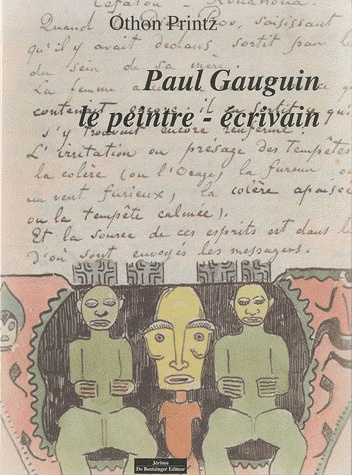 Cefaton - Rouanoua.
Othon Printz
Quand Poo, saisissant
qu'il y avait dedans, sortit
du sein de sa mère.
Paul Gauguin
La femme
le peintre - écrivain
s'y trouvait encore renfermé.
L'irritation ou présage des Tempêtes
la colère (ou l'Orage) la fureur ou
un vent furieux, la colère apaisée
ou la tempête calmée).
Et la source de ces esprits est dans l
D'où sont envoyés les messagers.
Jérôme
Do Bentzinger Editeur